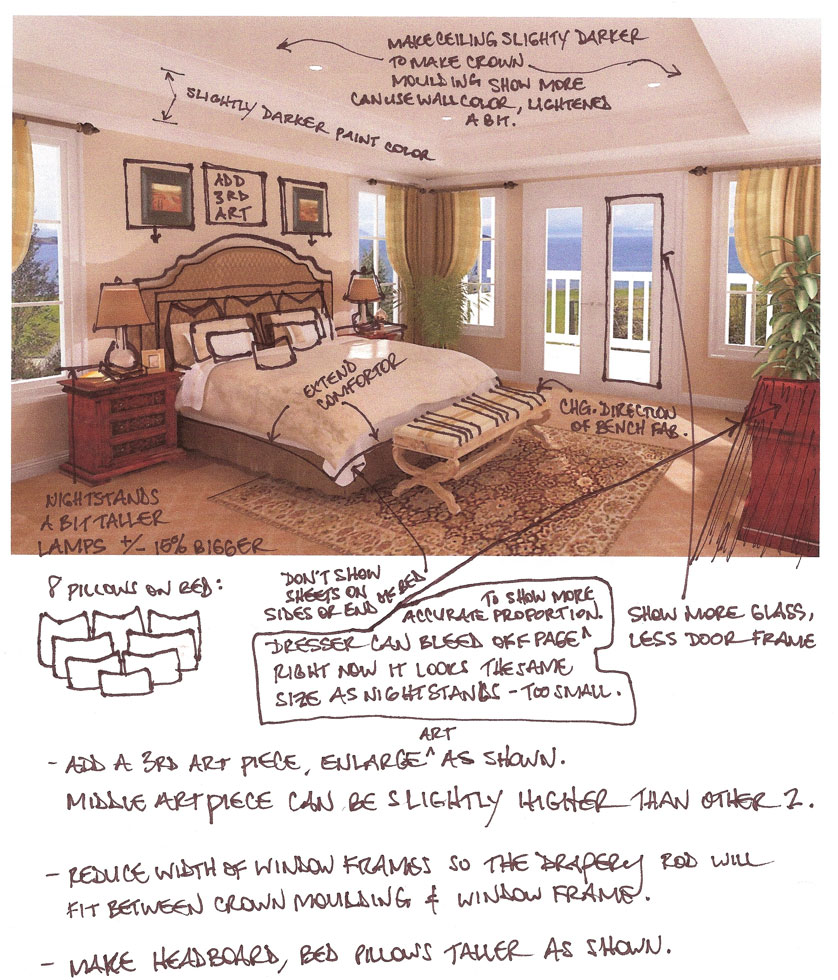 MAKE CEILING SLIGHTY DARKER
TO MAKE CROWN
MOULDING SHOW MORE
CAN USE WALL COLOR, LIGHTENED
A BIT.
SLIGHTLY DARKER PAINT COLOR
ADD
3RD
ART
EXTEND
COMFORTOR
CHG. DIRECTION
OF BENCH FAB.
NIGHTSTANDS
A BIT TALLER
LAMPS +/- 15% BIGGER
8 PILLOWS ON BED:
DON'T SHOW
SHEETS ON
SIDES OR END OF BED
TO SHOW MORE
ACCURATE PROPORTION.
DRESSER CAN BLEED OFF PAGE ^
RIGHT NOW IT LOOKS THE SAME
SIZE AS NIGHTSTANDS - TOO SMALL.
SHOW MORE GLASS,
LESS DOOR FRAME
ART
- ADD A 3RD ART PIECE, ENLARGE ^ AS SHOWN.
MIDDLE ART PIECE CAN BE SLIGHTLY HIGHER THAN OTHER 2.
- REDUCE WIDTH OF WINDOW FRAMES SO THE DRAPERY ROD WILL
FIT BETWEEN CROWN MOULDING & WINDOW FRAME.
- MAKE HEADBOARD, BED PILLOWS TALLER AS SHOWN.